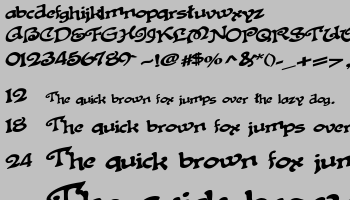 abcdefghijklmnopqrstuvwxyz
ABCDEFGHIJKLMNOPQRSTU
0123456789 ~!@#$%^&*()-_+=>,
12 The quick brown fox jumps over the lazy dog.
18 The quick brown fox jumps over
24 The quick brown fox jum
The quick brown